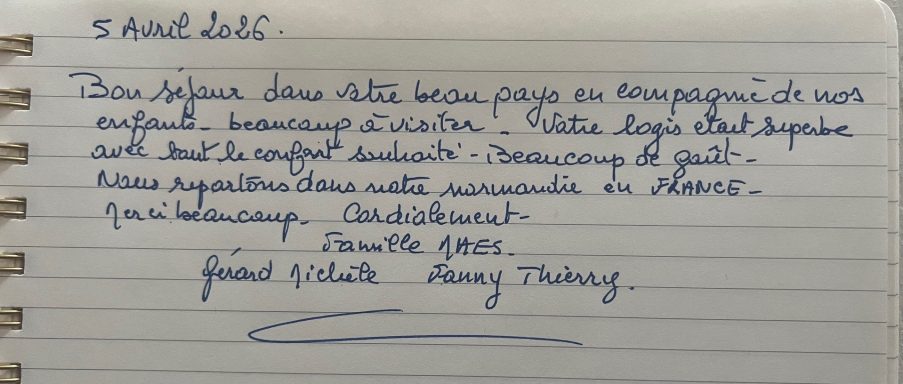 5 Avril 2026.
Bon séjour dans votre beau pays en compagnie de nos
enfants - beaucoup à visiter - Votre logis était superbe
avec tout le confort souhaité - Beaucoup de goût -
Nous repartons dans notre normandie en FRANCE -
Merci beaucoup - Cordialement -
Famille MAES.
Gérard Michèle Fanny Thierry.